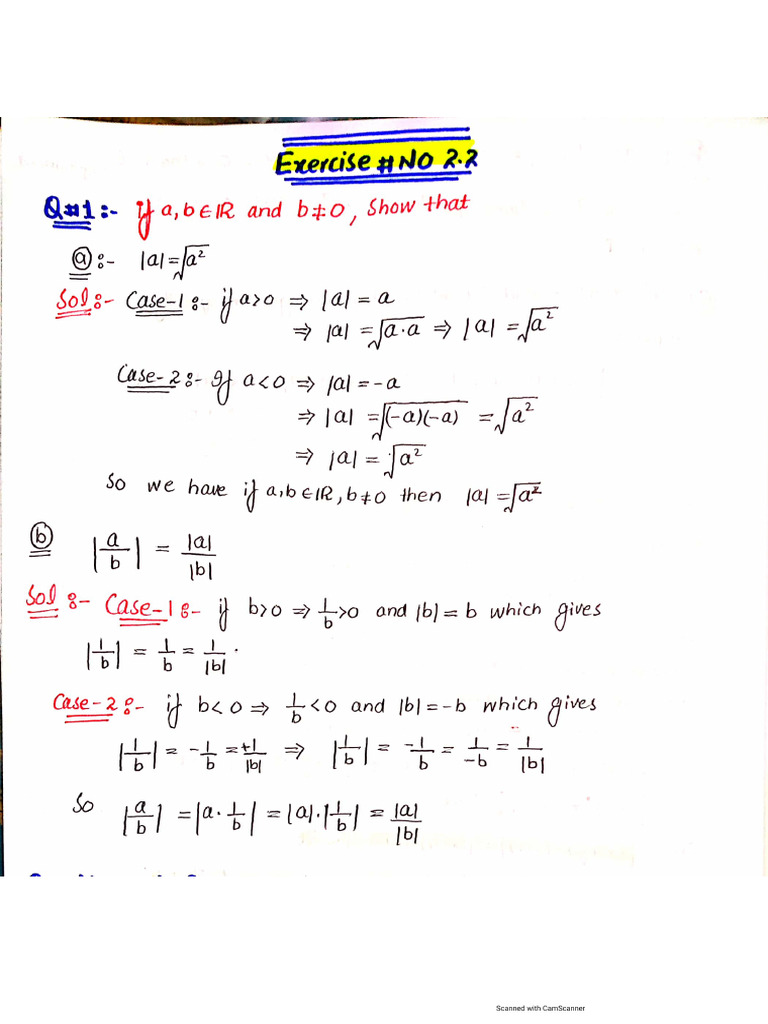 Exercise # NO 2.2
Q#1:- If a,b∈IR and b≠0, Show that
ⓐ:- |a|=√a²
Sol:- Case-1:- if a>0 ⇒ |a| = a
⇒ |a| = √a·a ⇒ |a| = √a²
Case-2:- If a<0 ⇒ |a| = -a
⇒ |a| = √(-a)(-a) = √a²
⇒ |a| = √a²
So we have if a,b∈IR, b≠0 then |a| = √a²
ⓑ |a/b| = |a|/|b|
Sol:- Case-1:- if b>0 ⇒ 1/b>0 and |b|= b which gives
|1/b| = 1/b = 1/|b| .
Case-2:- if b<0 ⇒ 1/b<0 and |b|=-b which gives
|1/b| = -1/b = +1/|b| ⇒ |1/b| = -1/b = 1/-b = 1/|b|
So |a/b| = |a·1/b| = |a|·|1/b| = |a|/|b|
Scanned with CamScanner